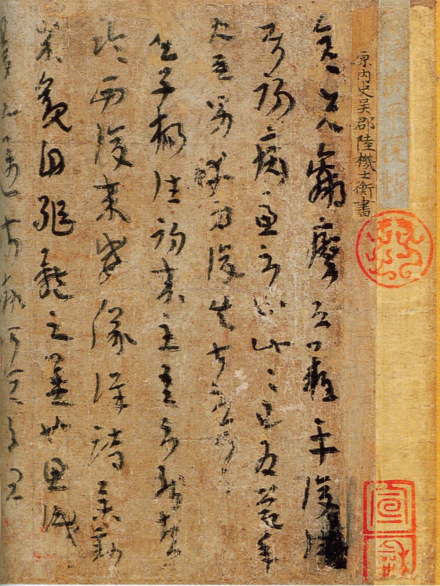 原内史吳郡陸機士衡書
彦先羸瘵恐難平復往屬
初病慮不止此此已為慶承
使唯男幸為復失前憂耳
吳子楊往初來主吾不能盡
臨西復來威儀詳跱舉動
成觀自軀體之美也思識
量之邁前